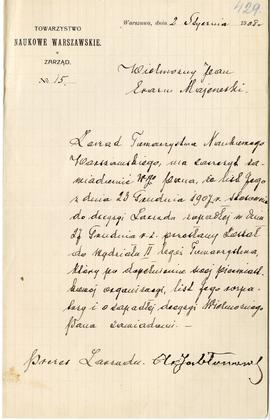 429.
TOWARZYSTWO
NAUKOWE WARSZAWSKIE.
ZARZĄD.
№ 15.
Warszawa, dnia 2 Stycznia 1908.
Wielmożny Pan
Erazm Majewski
Zarząd Towarzystwa Naukowego
Warszawskiego, ma zaszczyt za-
wiadomić W-go Pana, że list Jego
z dnia 23 Grudnia 1907 r. stosownie
do decyzji Zarządu zapadłej w dniu
Grudnia r. z. przesłany został
do Wydziału II tegoż Towarzystwa,
który po dopełnieniu swej
organizacji, list Jego rozpa-
trzy i o zapadłej decyzji Wielmożnego
Pana zawiadomi. —
Prezes Zarządu.